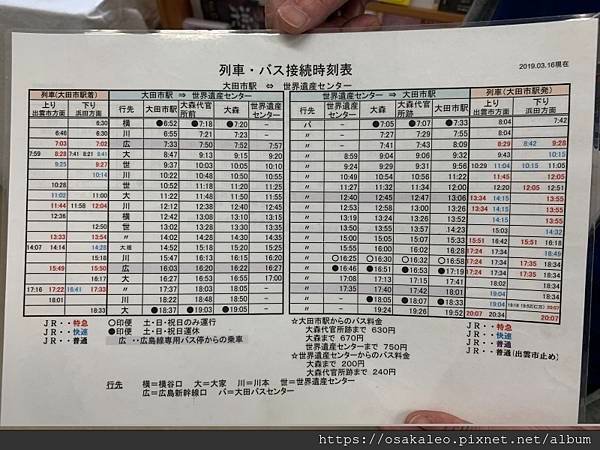 列車・バス接続時刻表
2019.03.16現在
大田市駅 ⇔ 世界遺産センター
列車(大田市駅着) 大田市駅 ⇒ 世界遺産センター 世界遺産センター ⇒ 大田市駅 列車(大田市駅発)
上り 出雲市方面 下り 浜田方面 行先 大田市駅 大森代官所前 大森 世界遺産センター 行先 世界遺産センター 大森 大森代官所跡 大田市駅 上り 出雲市方面 下り 浜田方面
6:30 横 ●6:52 ●7:18 ●7:20 － バ － ●7:05 ●7:07 ●7:33 8:04 7:42
6:46 6:30 川 6:55 7:21 7:23 － 〃 － 7:27 7:29 7:55 8:04
7:03 7:02 広 7:33 7:50 7:52 7:57 〃 － 7:41 7:43 8:09 8:29 8:42 9:28
7:59 8:28 7:41 8:21 8:41 大 8:47 9:13 9:15 9:20 〃 8:59 9:04 9:06 9:32 9:43 10:15
9:25 9:27 世 9:37 10:03 10:05 10:10 〃 9:24 9:29 9:31 9:56 10:29 11:04 10:15 11:05
川 10:22 10:48 10:50 10:55 〃 10:49 10:54 10:56 11:22 11:45 12:05
10:28 世 10:52 11:18 11:20 11:25 〃 11:27 11:32 11:34 12:00 12:20 12:05 12:51
11:02 11:00 大 11:25 11:51 11:53 11:58 〃 12:40 12:45 12:47 13:13 13:34 14:15 13:55
11:44 11:58 12:04 川 12:12 12:38 12:40 12:45 〃 12:53 12:58 13:00 13:26 13:34 14:15 13:55
12:36 横 12:42 13:08 13:10 13:15 〃 13:19 13:24 13:26 13:52 14:15 13:55
世 13:02 13:28 13:30 13:35 〃 13:50 13:55 13:57 14:23 15:03 14:32
13:33 13:54 〃 14:02 14:28 14:30 14:35 〃 15:00 15:05 15:07 15:33 15:51 16:42 15:51 16:18
14:07 14:14 14:28 大 14:52 15:18 15:20 15:25 〃 15:55 16:00 16:02 16:28 16:42 18:49
川 15:22 15:48 15:50 15:55 〃 ○16:25 ○16:30 ○16:32 ○16:58 17:24 17:35 18:34
15:49 15:50 広 16:03 16:20 16:22 16:27 〃 ●16:46 ●16:51 ●16:53 ●17:19 17:24 17:35 18:34
16:17 大 16:27 16:53 16:55 17:00 〃 17:35 17:40 17:42 17:59 18:34
17:16 17:22 16:41 17:33 〃 17:37 18:03 18:05 － 〃 17:35 17:40 17:42 18:08 19:04 18:34
18:01 川 18:22 18:48 18:50 － 〃 － ●18:05 ●18:07 ●18:33 19:04
18:33 大 ●18:37 ●19:03 ●19:05 － 〃 － 19:24 19:26 19:52 20:07 20:34 20:07
JR・・特急
JR・・快速
JR・・普通
○印便 土・日・祝日のみ運行
●印便 土・日・祝日運休
広 ・・広島線専用バス停からの乗車
☆大田市駅からのバス料金
大森代官所跡まで 630円
大森まで 670円
世界遺産センターまで 750円
☆世界遺産センターからのバス料金
大森まで 200円
大森代官所跡まで 240円
JR・・特急
JR・・快速
JR・・普通
JR・・普通(出雲市止め)
行先 横＝横谷口 大＝大家 川＝川本 世＝世界遺産センター
広＝広島新幹線口 バ＝大田バスセンター
https://osakaleo.pixnet.net/album